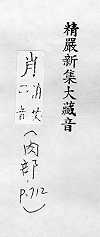 精嚴新集大藏音
肖
消笑
二音
(肉部
p.712)